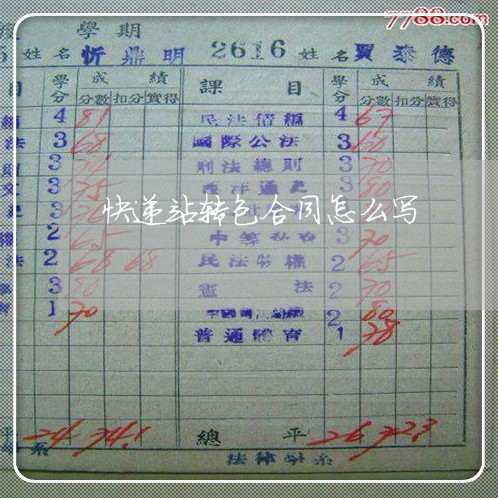 7788.com
學期
姓名 忻鼎明 2616 姓名 賈泰德
目 學分 成績 課目 學分 成績
分數 扣分 實得 分數 扣分 實得
4 81 民法債編 4 67
法 3 68 國際公法 3 60
3 刑法總則 3 70
3 75 西洋通史 3 80
快递站转包合同怎么写
2 65 3 70
法 2 68 68 民法物權 2 65
3 80 憲法 2 70
1 70 2 80
普通體育 1 78
平 24 74.1 總平 26 72.3
系 法律學系